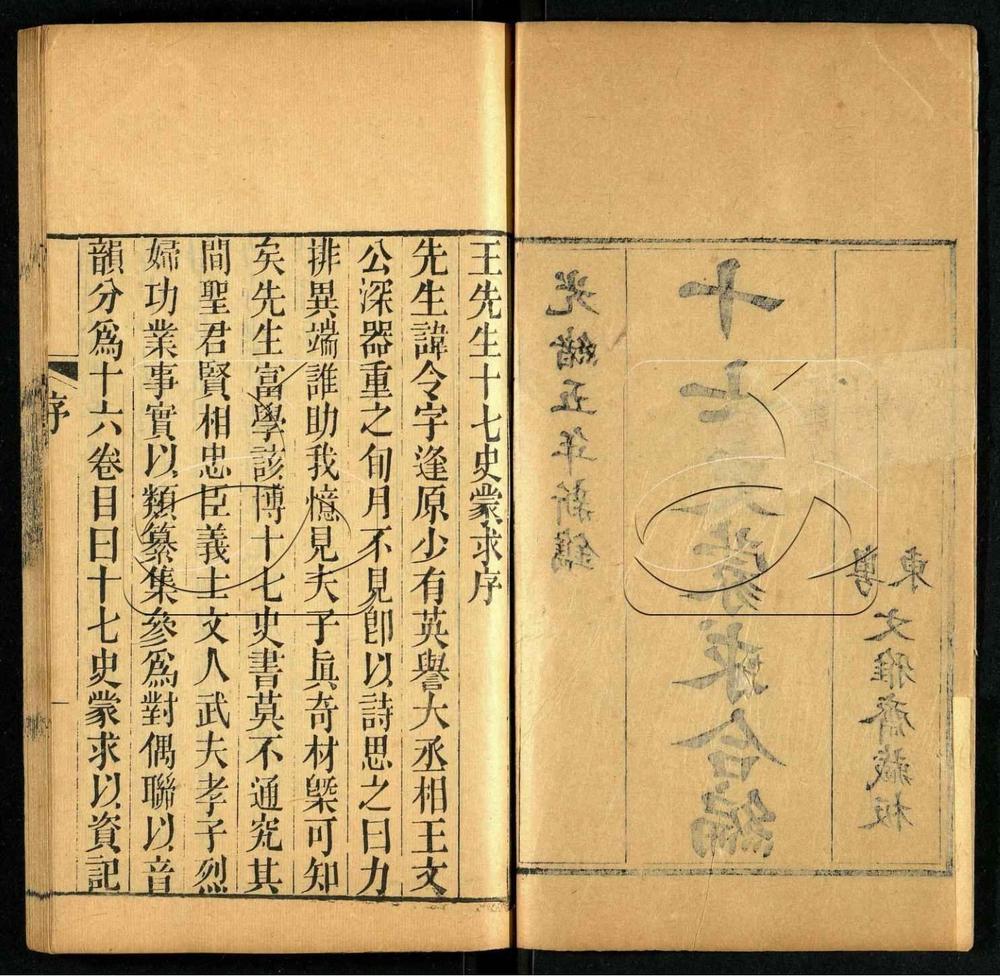 光緒五年新鐫
十七史蒙求合編
粤東
文雅齋藏板
王先生十七史蒙求序
先生諱令字逢原少有英譽大丞相王文
公深器重之旬月不見卽以詩思之曰力
排異端誰助我憶見夫子眞奇材槩可知
矣先生富學該博十七史書莫不通究其
間聖君賢相忠臣義士文人武夫孝子烈
婦功業事實以類纂集參爲對偶聯以音
韻分爲十六卷目曰十七史蒙求以資記
序
一